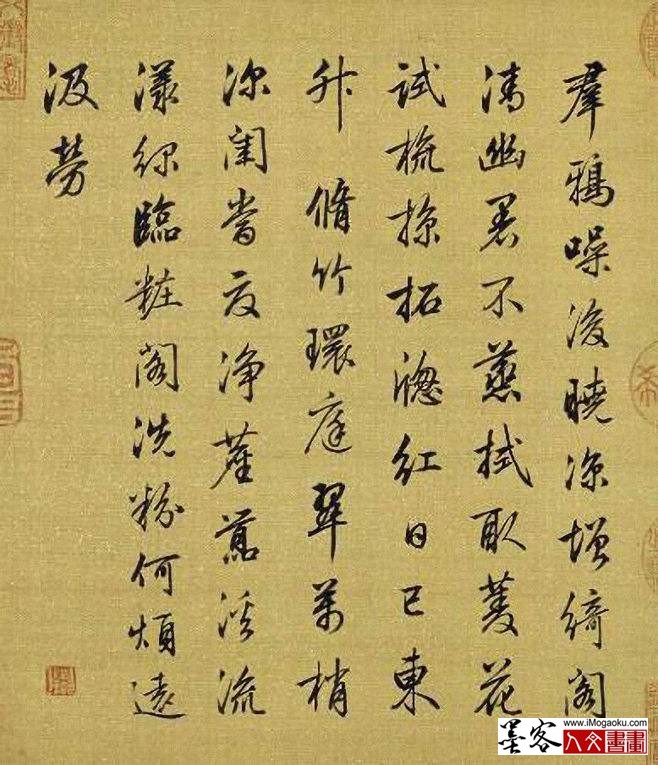 羣鴉噪後曉涼增綺閣
清幽暑不蒸拭取菱花
試梳掠拓窗紅日已東
升 脩竹環庭翠萬梢
深閨當夏淨蕉溪流
漾綠臨粧閣洗粉何煩遠
汲勞
墨客
www.iMogaoku.com
人文書畫